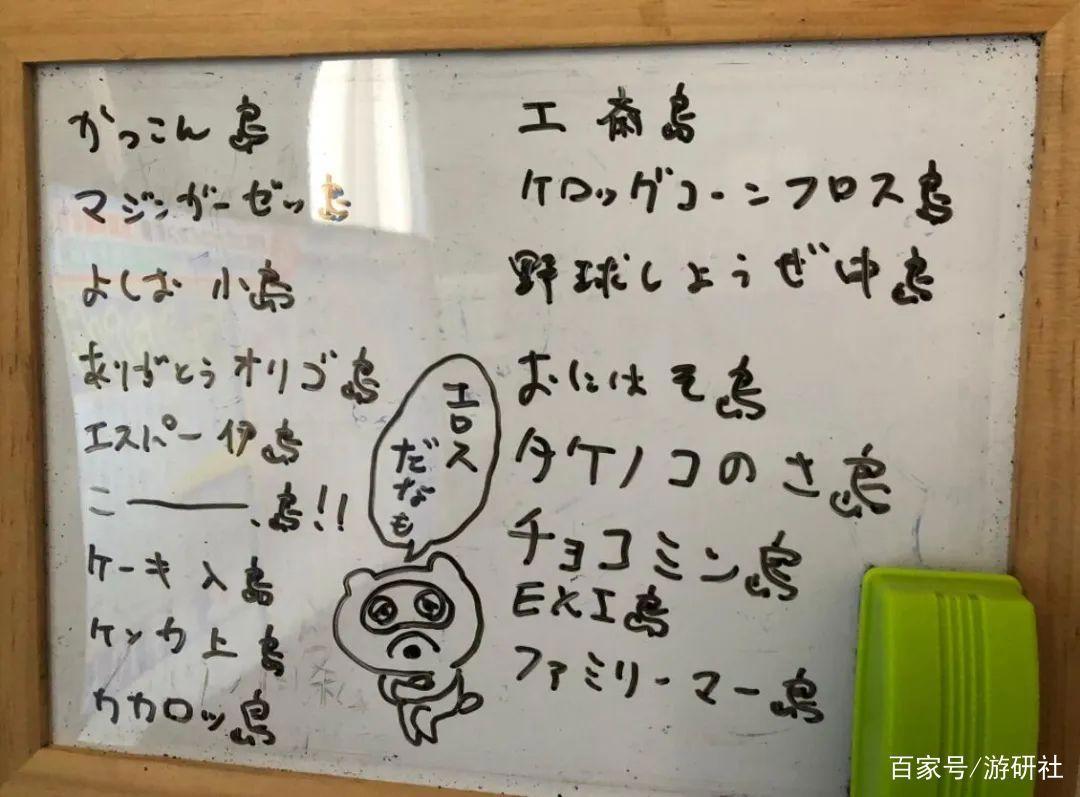 がっこん島
マジンガーゼッ島
よしお 小島
ありがとうオリゴ島
エスパー伊島
こ――――、島!!
ケーキ入島
ケンカ上島
カカロッ島
エロス
だなも
工斎島
ケロッグコーンフロス島
野球しようぜ中島
おにはそ島
タケノコのさ島
チョコミン島
EXI島
ファミリーマー島
百家号/游研社